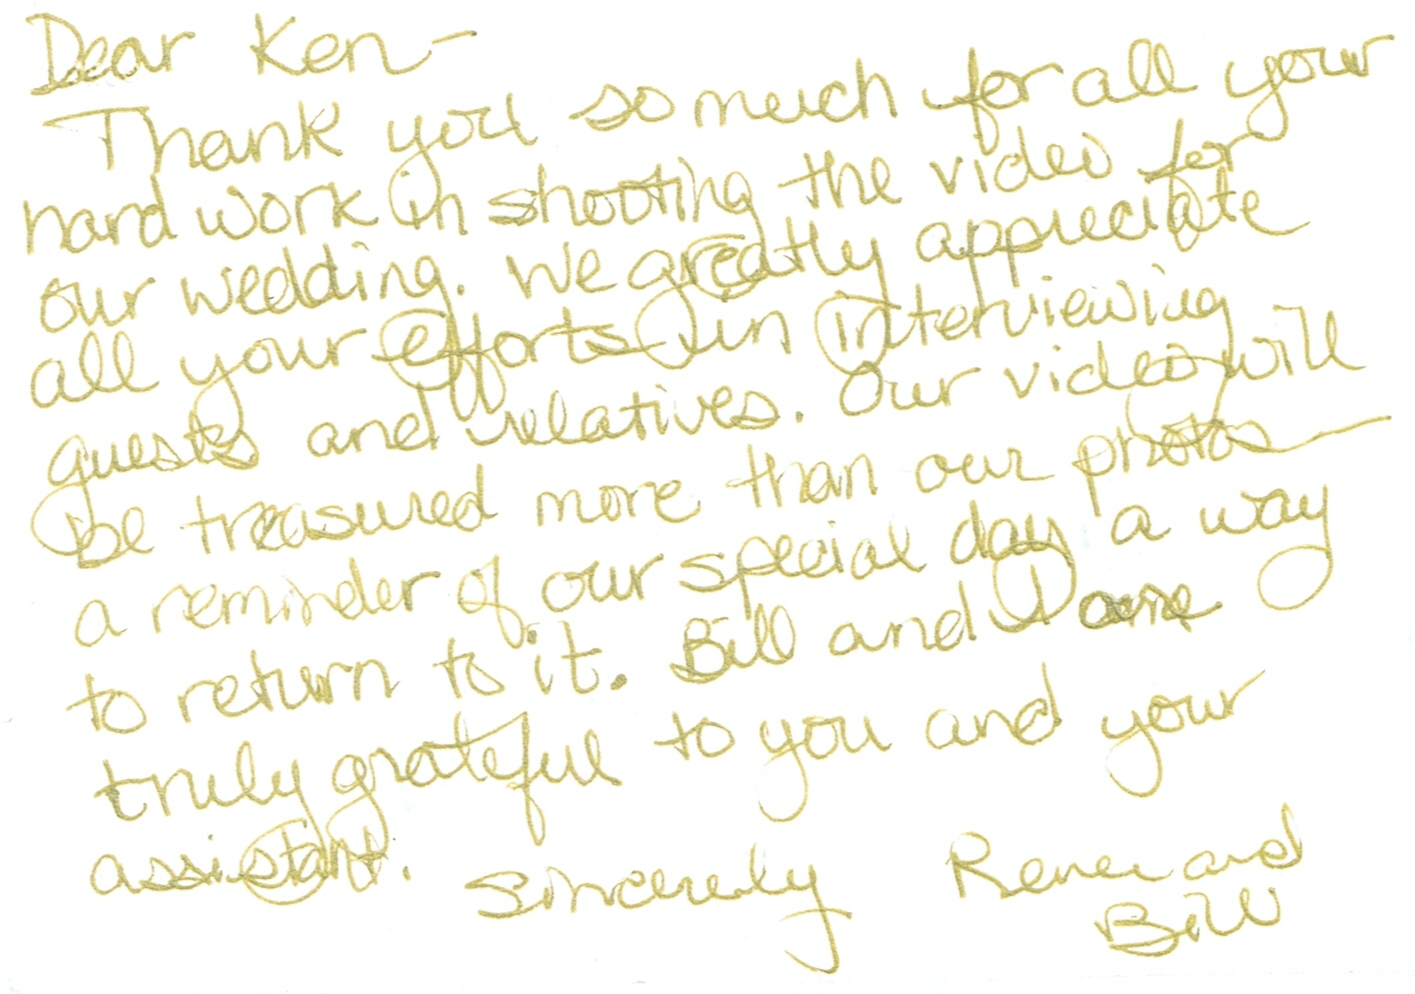 Dear Ken-
Thank you so much for all your
hard work in shooting the video for
our wedding. We greatly appreciate
all your efforts in interviewing
guests and relatives. Our video will
be treasured more than our photos
a reminder of our special day a way
to return to it. Bill and I are
truly grateful to you and your
assistant.
Sincerely Renee and
Bill